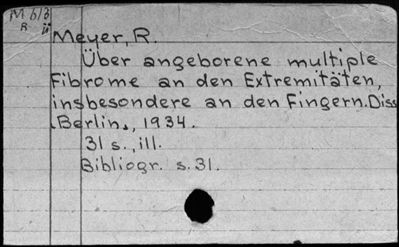 M b/b
R ü
Meyer, R.
Über angeborene multiple
Fibrome an den Extremitäten,
insbesondere an den Fingern. Diss
Berlin, 1934.
31 s., ill.
Bibliogr. s. 31.